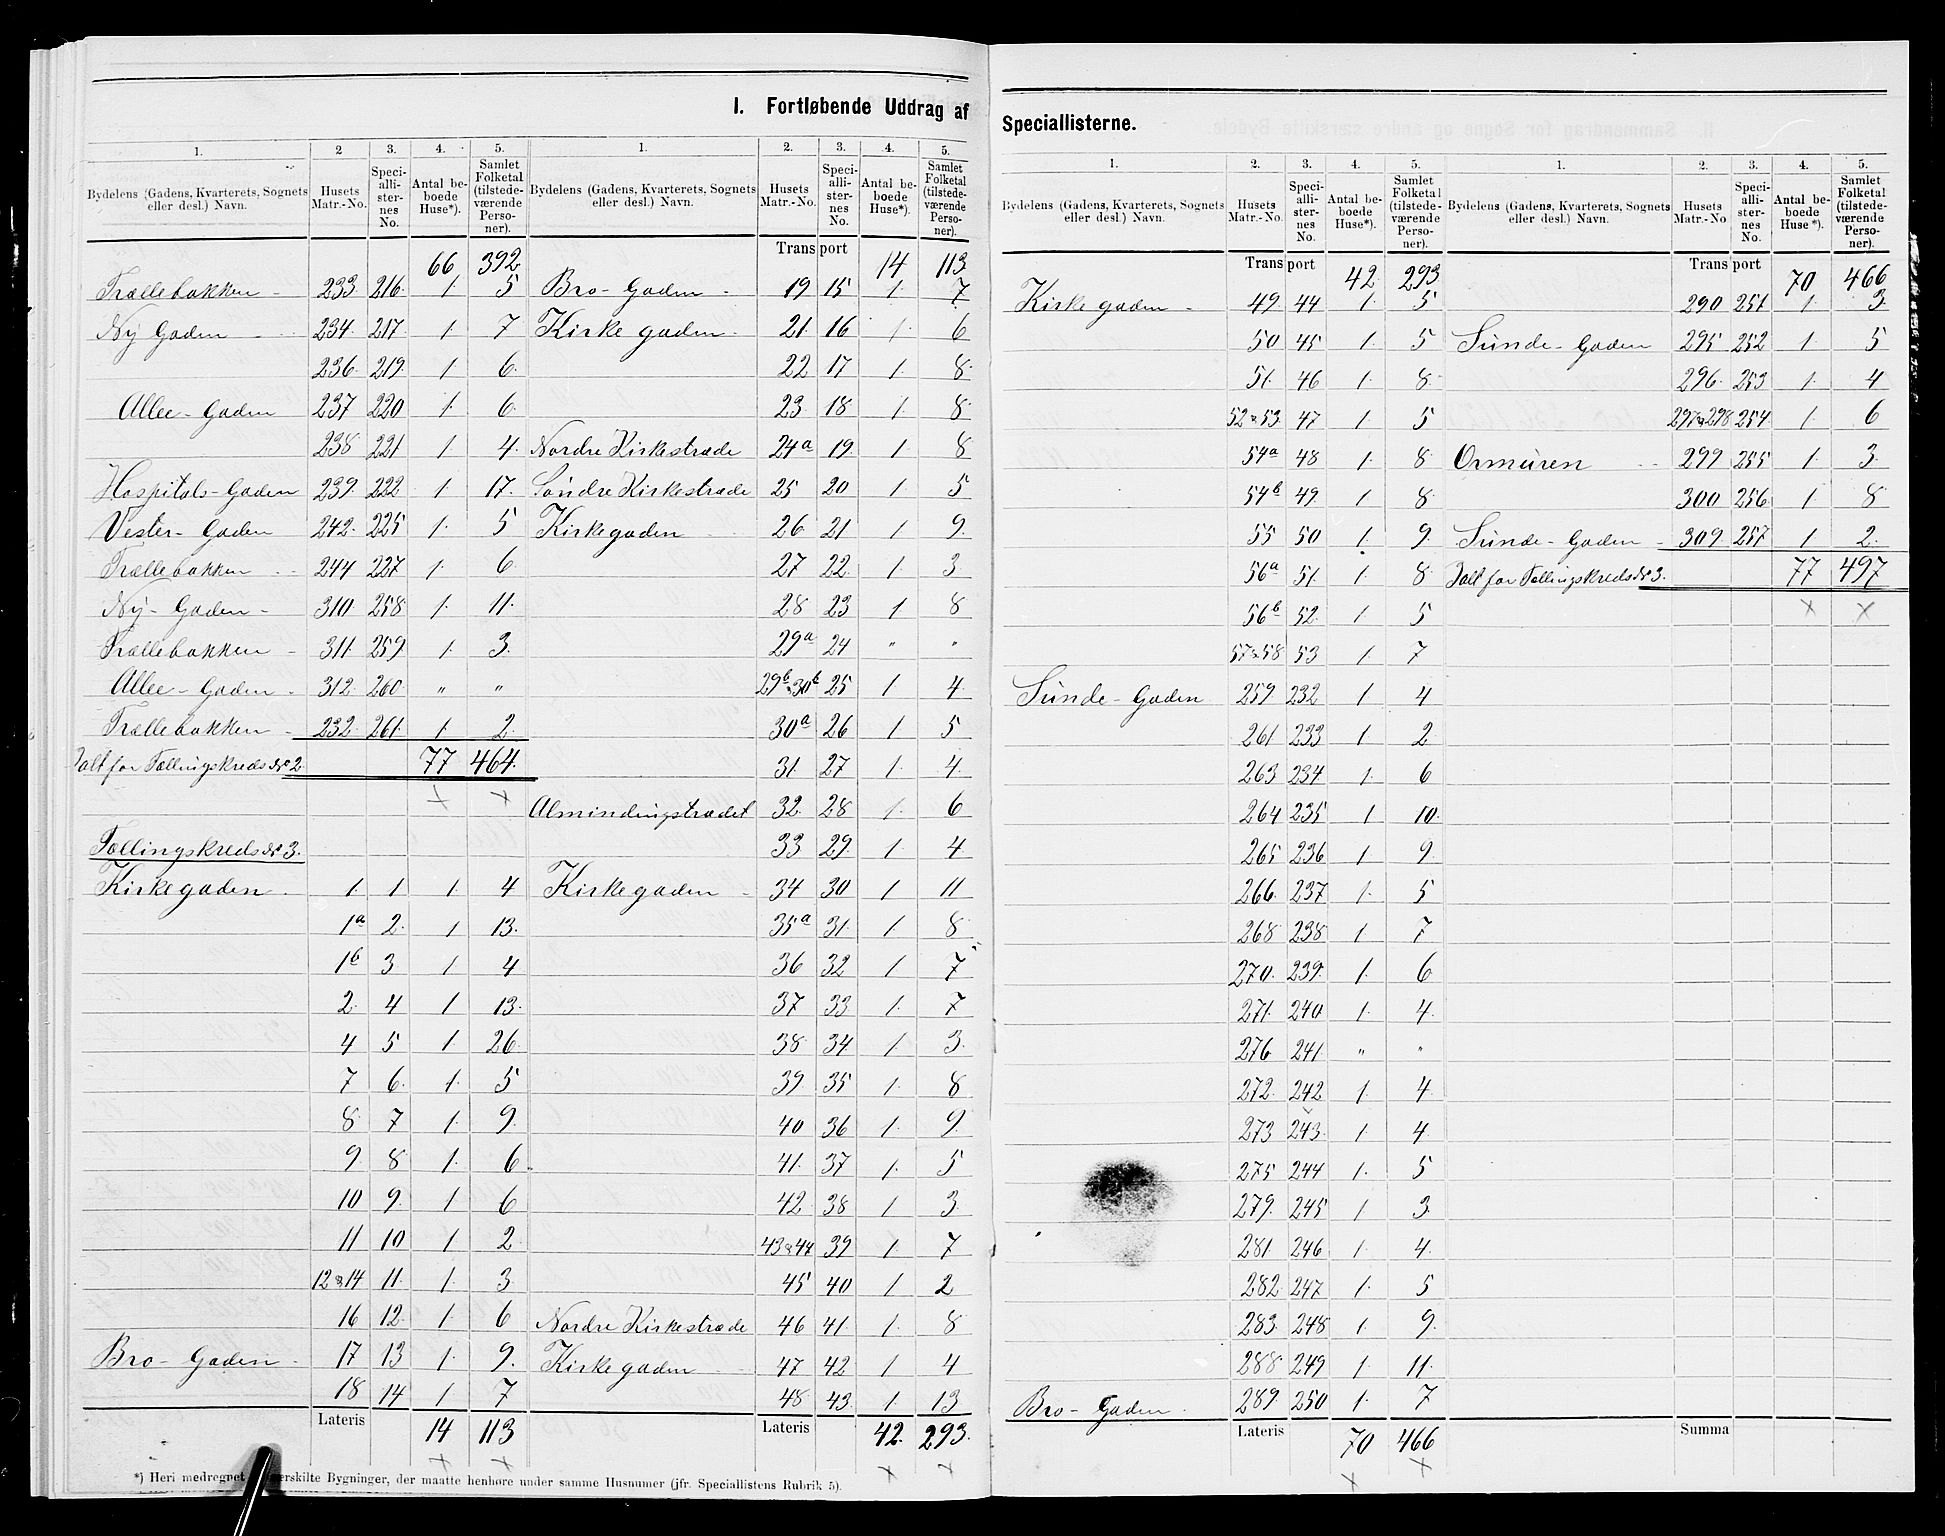 I. Fortløbende Uddrag af
1. 2 3. 4. 5.
Bydelens (Gadens, Kvarterets, Sognets eller desl.) Navn. Husets Matr.-No. Speciallisternes No. Antal beboede Huse*). Samlet Folketal (tilstedeværende Personer).
66 392
Trællebakken - 233 216 1 5
Ny Gaden 234 217 1 7
236 219 1 6
Allee-Gaden 237 220 1 6
238 221 1 4
Hospitals-Gaden 239 222 1 17
Vester-Gaden 242 225 1 5
Trællebakken 244 227 1 6
Ny-Gaden - 310 258 1 11
Trællebakken - 311 259 1 3
Allee-Gaden - 312 260 " "
Trællebakken - 232 261 1 2
Ialt for Tællingskreds No 2 77 464
Tællingskreds No 3.
Kirkegaden 1 1 1 4
1a 2 1 13
1b 3 1 4
2 4 1 13
4 5 1 26
7 6 1 5
8 7 1 9
9 8 1 6
10 9 1 6
11 10 1 2
12 & 14 11 1 3
16 12 1 6
Bro-Gaden - 17 13 1 9
18 14 1 7
Lateris 14 113
1. 2. 3. 4. 5.
Bydelens (Gadens, Kvarterets, Sognets eller desl.) Navn. Husets Matr.-No. Speciallisternes No. Antal beboede Huse*). Samlet Folketal (tilstedeværende Personer).
Transport 14 113
Bro-Gaden - 19 15 1 7
Kirkegaden - 21 16 1 6
22 17 1 8
23 18 1 8
Nordre Kirkestræde 24a 19 1 8
Søndre Kirkestræde 25 20 1 5
Kirkegaden 26 21 1 9
27 22 1 3
28 23 1 8
29a 24 " "
29b & 30b 25 1 4
30a 26 1 5
31 27 1 4
Almindingstrædet 32 28 1 6
33 29 1 4
Kirkegaden - 34 30 1 11
35a 31 1 8
36 32 1 7
37 33 1 7
38 34 1 3
39 35 1 8
40 36 1 9
41 37 1 5
42 38 1 3
43 & 44 39 1 7
45 40 1 2
Nordre Kirkestræde 46 41 1 8
Kirkegaden 47 42 1 4
48 43 1 13
Lateris 42 293
*) Heri medregnet særskilte Bygninger, der maatte henhøre under samme Husnumer (jfr. Speciallistens Rubrik 5).
Speciallisterne.
1. 2. 3. 4. 5.
Bydelens (Gadens, Kvarterets, Sognets eller desl.) Navn. Husets Matr.-No Speciallisternes No. Antal beboede Huse*). Samlet Folketal (tilstedeværende Personer).
Transport 42 293
Kirkegaden - 49 44 1 5
50 45 1 5
51 46 1 8
52 & 53 47 1 5
54a 48 1 8
54b 49 1 8
55 50 1 9
56a 51 1 8
56b 52 1 5
57 & 58 53 1 7
Sunde-Gaden 259 232 1 4
261 233 1 2
263 234 1 6
264 235 1 10
265 236 1 9
266 237 1 5
268 238 1 7
270 239 1 6
271 240 1 4
276 241 " "
272 242 1 4
273 243 1 4
275 244 1 5
279 245 1 3
281 246 1 4
282 247 1 5
283 248 1 9
288 249 1 11
Bro-Gaden 289 250 1 7
Lateris 70 466
1. 2. 3. 4. 5.
Bydelens (Gadens, Kvarterets, Sognets eller desl.) Navn. Husets Matr.-No Speciallisternes No. Antal beboede Huse*). Samlet Folketal (tilstedeværende Personer).
Transport 70 466
290 251 1 3
Sunde-Gaden 295 252 1 5
296 253 1 4
297 & 298 254 1 6
Ormuren 299 255 1 3
300 256 1 8
Sunde-Gaden - 309 257 1 2
Ialt for Tællingskreds No 3. 77 497
Summa